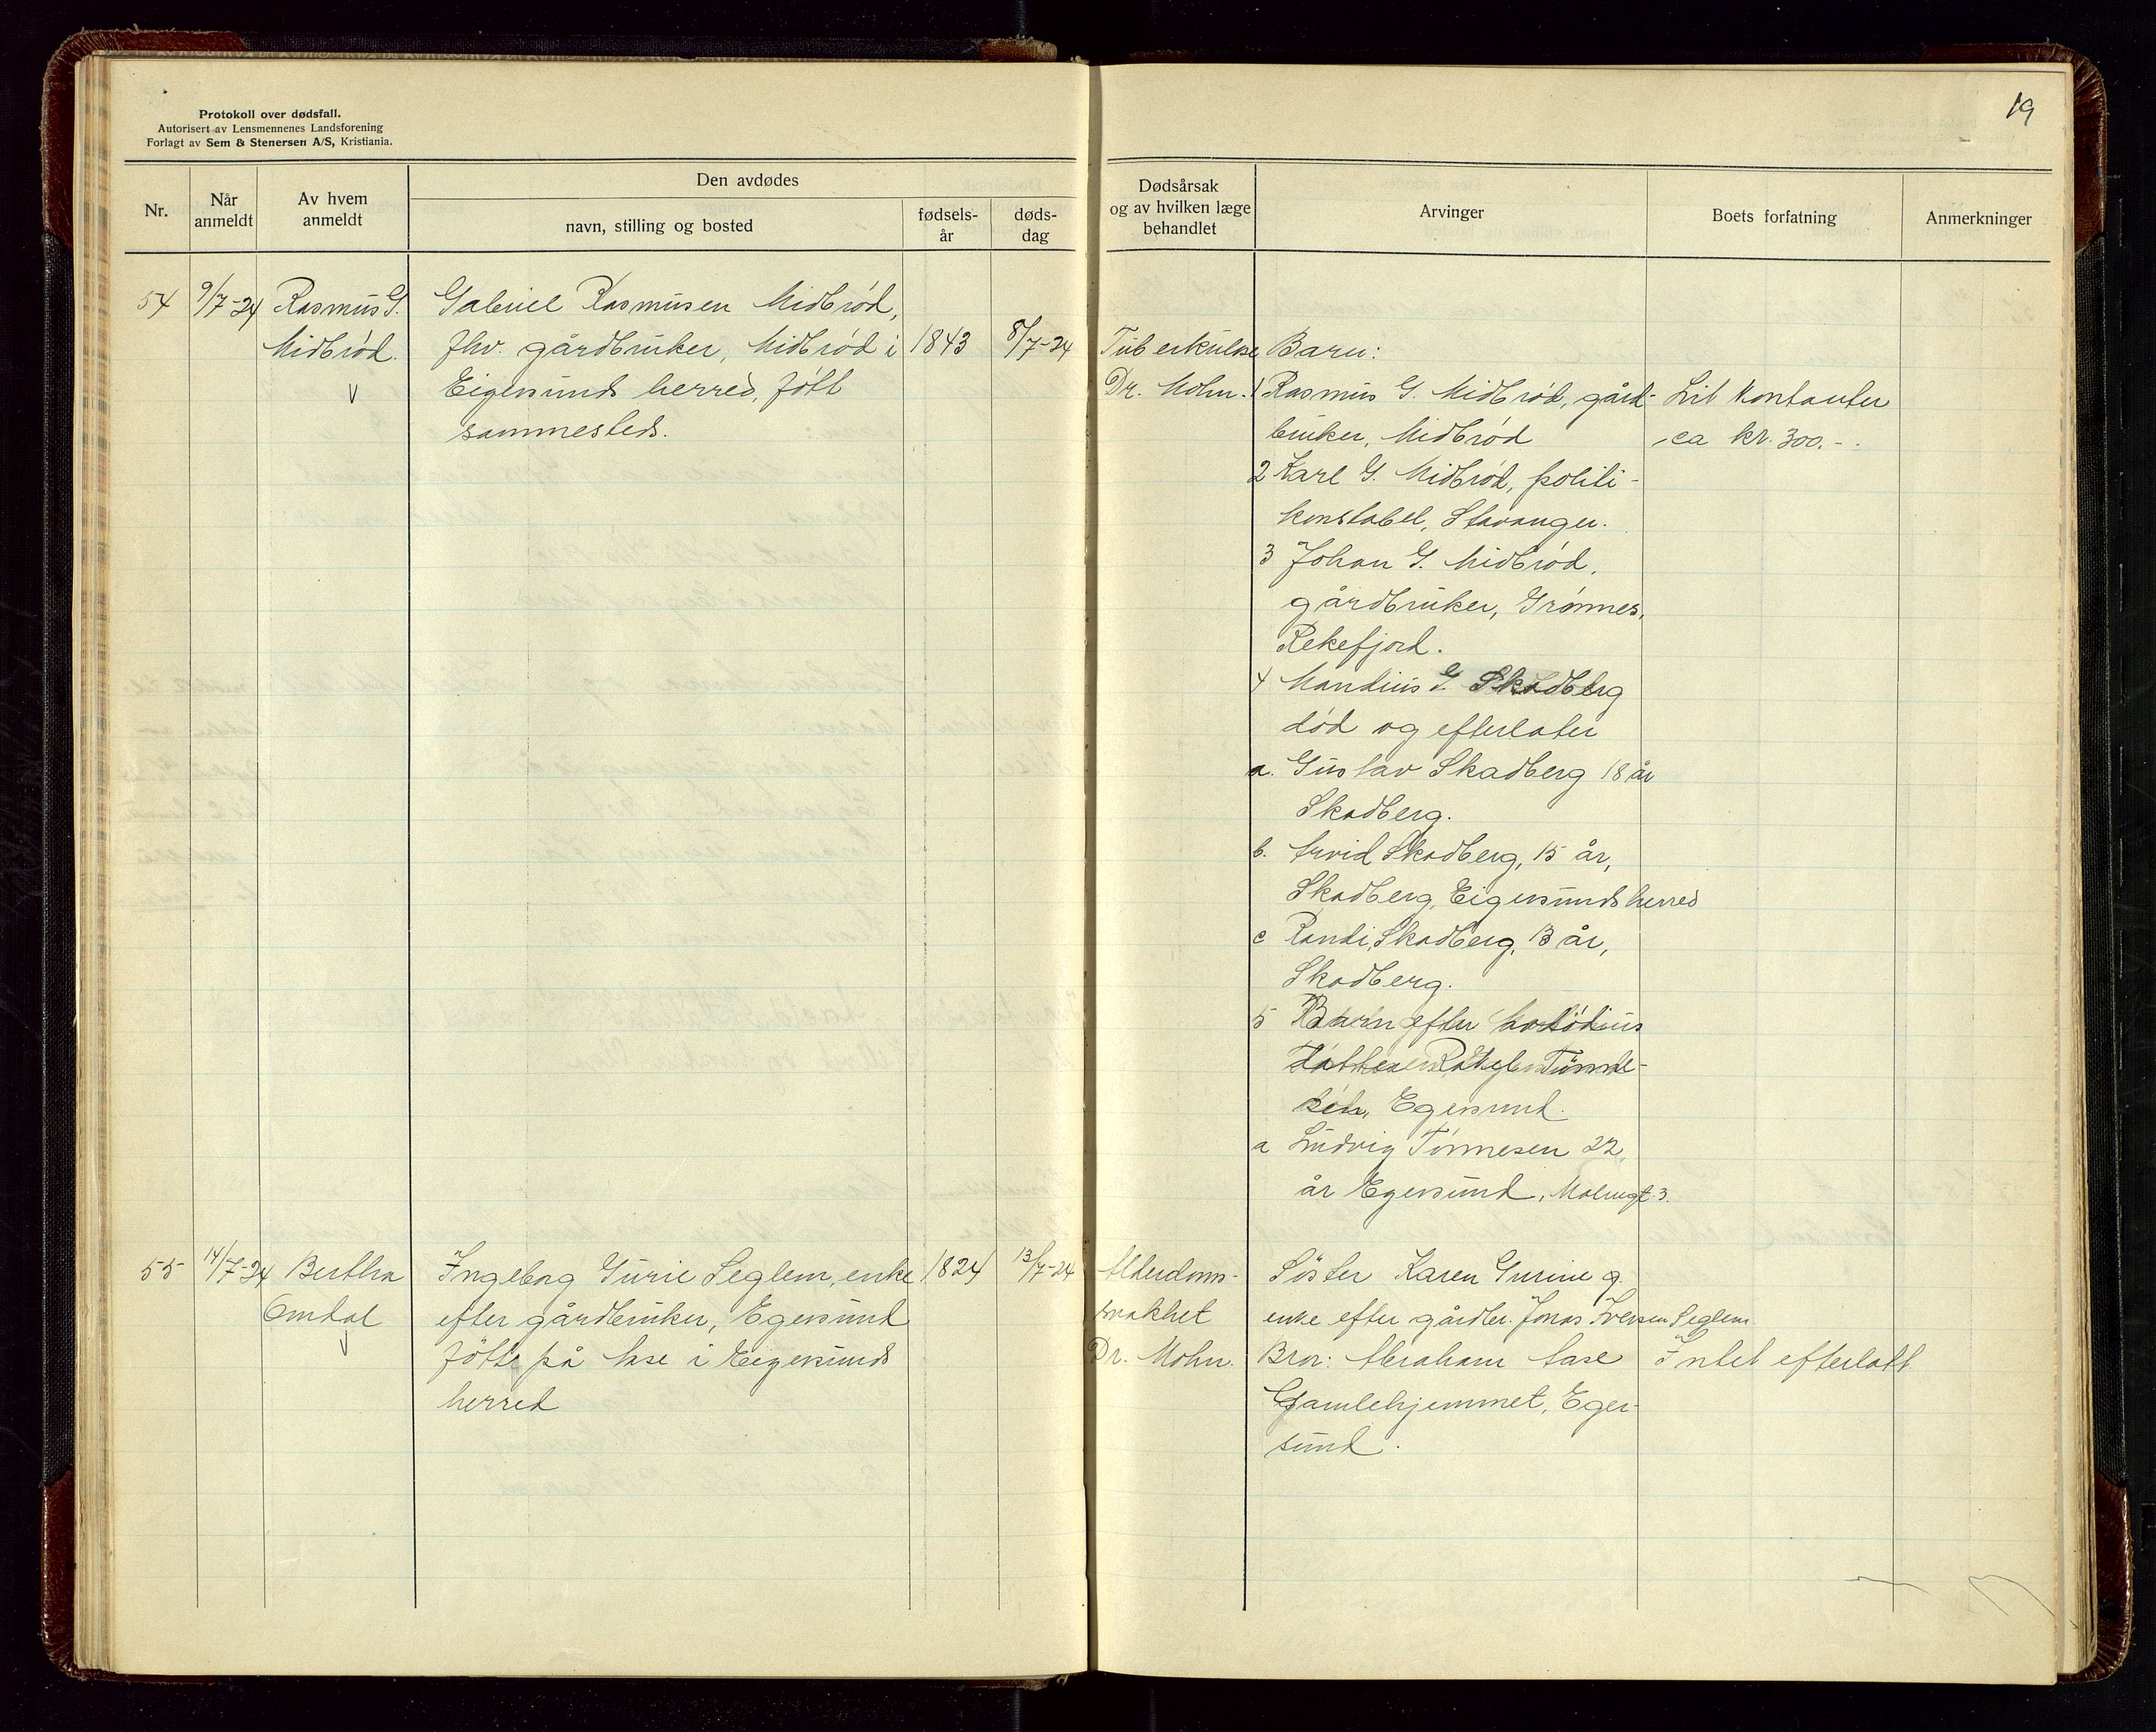 Protokoll over dødsfall.
Autorisert av Lensmennenes Landsforening
Forlagt av Sem & Stenersen A/S, Kristiania.
19
Nr.
Når anmeldt
Av hvem anmeldt
Den avdødes
navn, stilling og bosted
fødsels-år
døds-dag
Dødsårsak
og av hvilken læge
behandlet
Arvinger
Boets forfatning
Anmerkninger
54 9/7-24 Rasmus G. Gabriel Rasmusen Midbrød,
Midbrød. fhv. gårdbruker, Midbrød i 1843 8/7-24
Eigersunds herred, født
sammesteds.
Tuberkulose Barn:
Dr. Mohn. 1 Rasmus G. Midbrød, gård- Litt kontanter
bruker, Midbrød ca kr. 300.-.
2 Karl G. Midbrød, politi-
konstabel, Stavanger.
3 Johan G. Midbrød,
gårdbruker, Grønnes,
Rekefjord.
4 G. Skadberg
død og efterlater
a. Gustav Skadberg 18 år
Skadberg.
b. Arvid Skadberg, 15 år,
Skadberg, Eigersunds herred
c Randi Skadberg, 13 år,
Skadberg.
5 Barn efter
Egersund.
a Ludvig Tönnesen 22
år Egersund,
55 14/7-24 Bertha Ingeborg Gurie Seglem, enke 1824 13/7-24
Omdal efter gårdbruker, Egersund
født på Aase i Eigersunds
herred
Alderdoms- Söster Karen Gurine g.
svakhet enke efter gårdbr. Jonas Iversen Seglem.
Dr. Mohn. Bror: Abraham Aase Intet efterlatt
Gamlehjemmet, Eger-
sund.